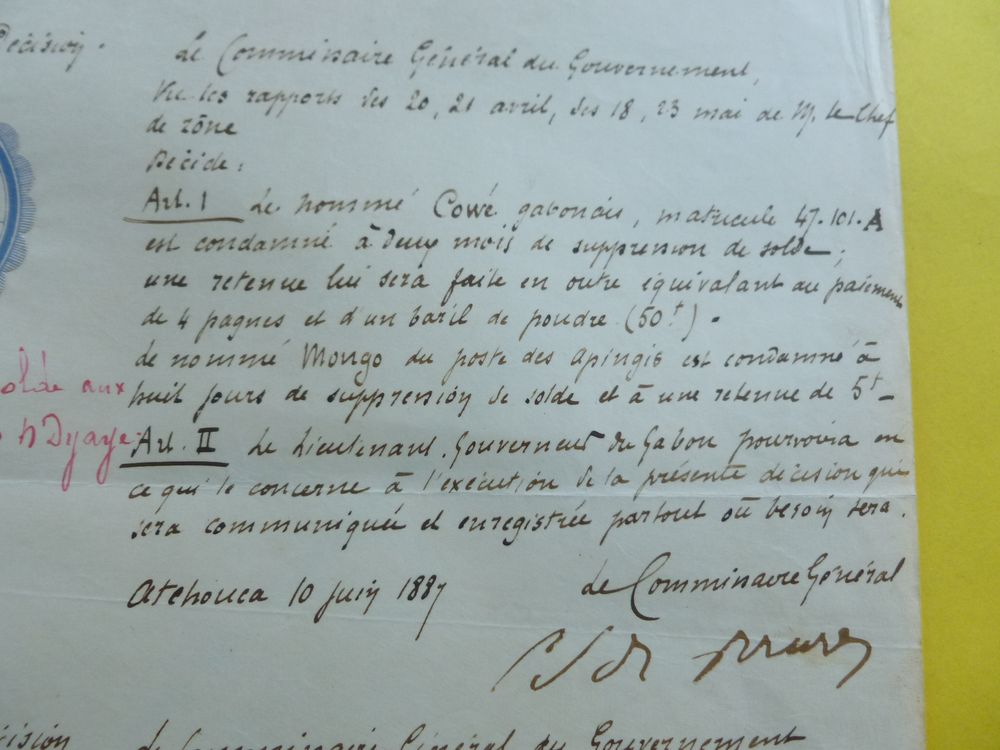 Décision.
Le Commissaire Général du Gouvernement,
Vu les rapports des 20, 21 avril, des 18, 23 mai de M. le Chef
de zône
Décide:
Art. I Le nommé Cowé gabonais, matricule 47.101.A
est condamné à deux mois de suppression de solde;
une retenue lui sera faite en outre équivalant au paiement
de 4 pagnes et d'un baril de poudre (50f).
Le nommé Mongo du poste des Apingis est condamné à
huit jours de suppression de solde et à une retenue de 5f
olde aux
N'Dyaye
Art. II Le Lieutenant Gouverneur du Gabon pourvoira en
ce qui le concerne à l'exécution de la présente décision qui
sera communiquée et enregistrée partout où besoin sera.
Atchouca 10 juin 1887
Le Commissaire Général
cision
Le Commissaire Général du Gouvernement